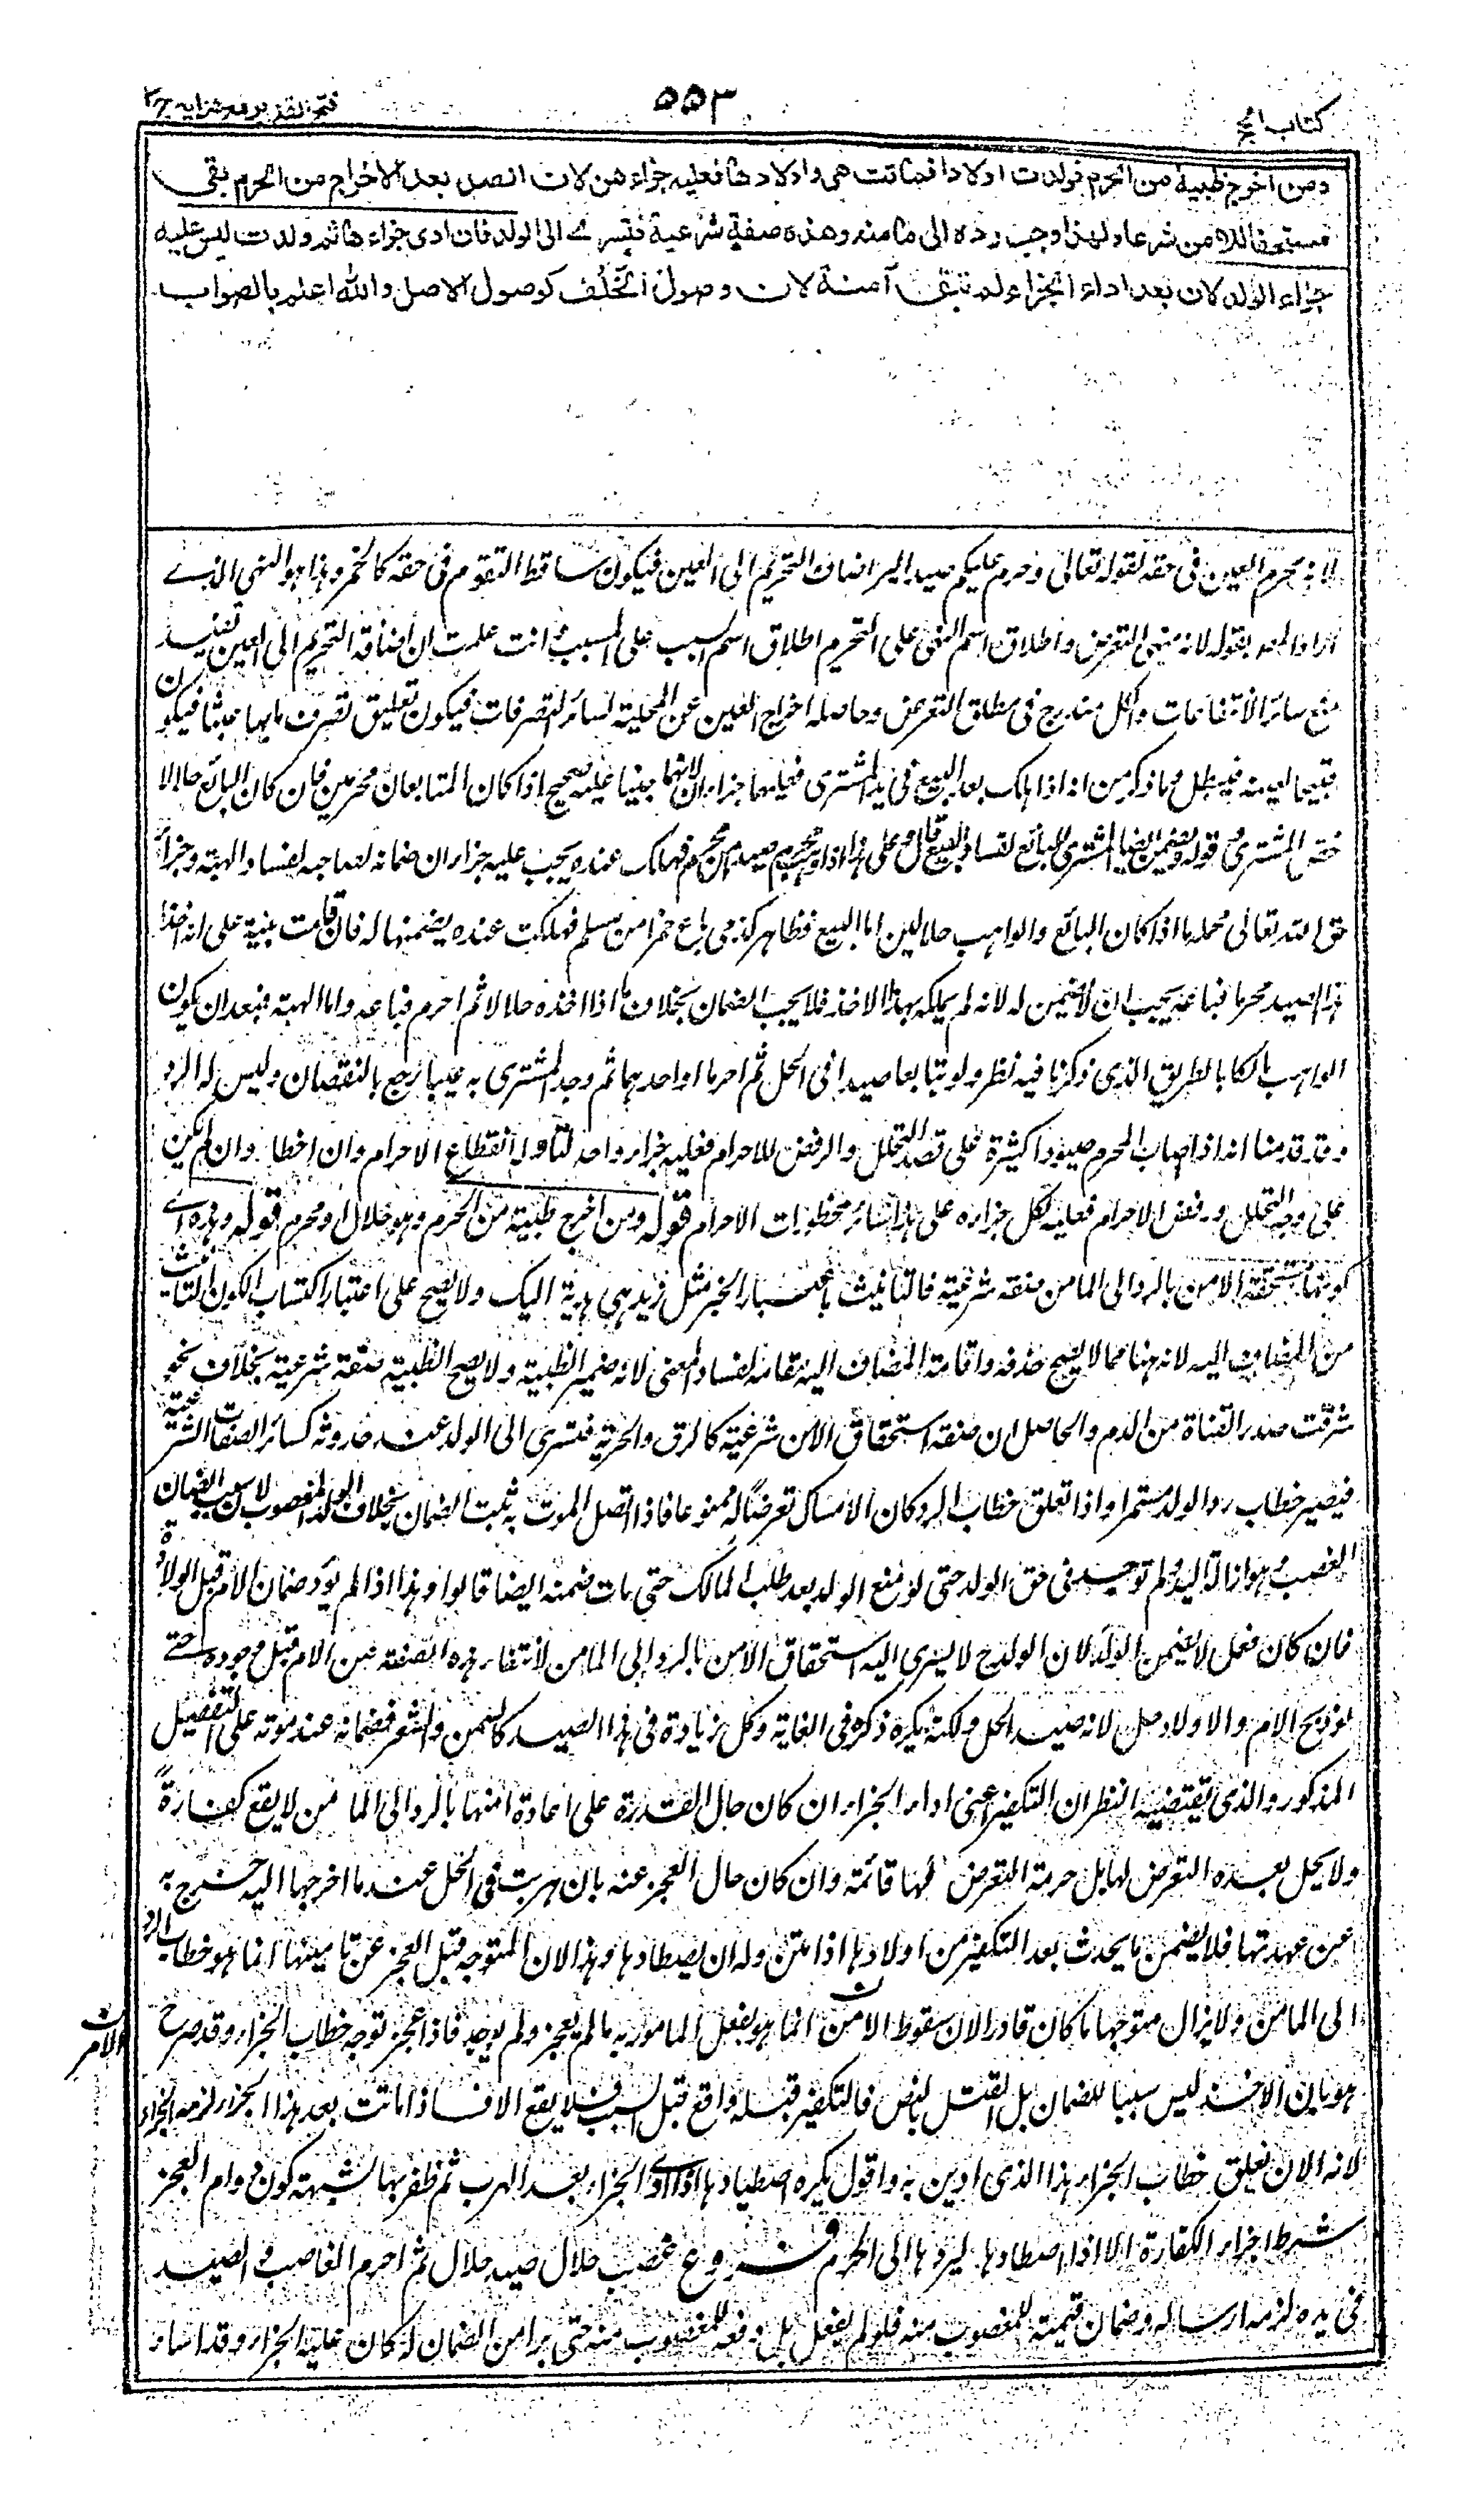 كتاب الحج
٥٥٣
فتح القدير مع هدايه ج٢
ومن اخرج ظبية من الحرم فولدت اولادا فماتت هي واولادها فعليه جزاءهن لان الصيد بعد الاخراج من الحرم بقى
مستحقا للامن شرعا ولهذا وجب رده الى مامنه وهذه صفة شرعية فتسرى الى الولد فان ادى جزاءها ثم ولدت ليس عليه
جزاء الولد لان بعد اداء الجزاء لم تبق آمنة لان وصول الخلف كوصول الاصل والله اعلم بالصواب
لانه محرم العين فى حقه لقوله تعالى وحرم عليكم صيد البر اضاف التحريم الى العين فيكون ساقط التقوم فى حقه كالخمر وهذا هو النهى الذے
اراد المص بقوله لانه منهى التعرض واطلاق اسم النهى على التحريم اطلاق اسم السبب على المسبب وانت علمت ان اضافة التحريم الى العين تفيد
منع سائر الانتفاعات والكل مندرج فى مطلق التعرض وحاصله اخراج العين عن المحلية لسائر التصرفات فيكون تعليق تصرف ما بها عبثا فيكون
قبيحا لعينه فيبطل وما ذكر من انه اذا هلك بعد البيع فى يد المشترى فعليهما جزاءان لانهما جنيا عليه صحيح اذا كان المتبايعان محرمين فان كان البائع حلالا
خص المشترى وقوله ويضمن ايضا المشترى للبائع لفساد البيع قال محمد على هذا اذا وهب محرم صيدا من محرم فهلك عنده يجب عليه جزاءان ضمانه لصاحبه لفساد الهبة وجزاء
حق الله تعالى محمله ما اذا كان البائع والواهب حلالين اما البيع فظاهر كذمى باع خمرا من مسلم فهلكت عنده يضمنها له فان قامت بينة على انه اخذ
هذا الصيد محرما فباعه يجب ان لا يضمن له لانه لم يملكه بهذا الاخذ فلا يجب الضمان بخلاف ما اذا اخذه حلالا ثم احرم فباعه واما الهبة فبعد ان يكون
الواهب مالكا بالطريق الذى ذكرنا فيه نظر ولو تبايعا صيدا فى الحل ثم احرما او احدهما ثم وجد المشترى به عيبا رجع بالنقصان وليس له الرد
وقد قدمنا انه اذا اصاب المحرم صيودا كثيرة على قصد التحلل والرفض للاحرام فعليه جزاء واحد لتاوله انقطاع الاحرام وان اخطا وان لم يكن
على وجه التحلل ورفض الاحرام فعليه لكل جزاءه على هذا سائر محظورات الاحرام قوله ومن اخرج ظبية من الحرم وهو حلال او محرم قوله وهذه اے
كونها مستحقة الامن بالرد الى المامن صفة شرعية فالتانيث باعتبار الخبر مثل زيد هى هدية اليك ولا يصح على اعتبار اكتساب الكون التانيث
من المضاف اليه لانه هنا مما لا يصح حذفه واقامة المضاف اليه مقامه لفساد المعنى لانه ضمير الظبية ولا يصح الظبية صفة شرعية بخلاف نحو
شرقت صدر القناة من الدم والحاصل ان صفة استحقاق الامن شرعية كالرق والحرية فتسرى الى الولد عند حدوثه كسائر الصفات الشرعية
فيصير خطاب رد الولد مستمرا واذا تعلق خطاب الرد كان الامساك تعرضا له ممنوعا فاذا اتصل الموت به ثبت الضمان بخلاف الولد المغصوب لان سبب الضمان
الغصب وهو ازالة اليد ولم توجد فى حق الولد حتى لو منع الولد بعد طلب المالك حتى مات ضمنه ايضا قالوا وهذا اذا لم يؤد ضمان الام قبل الولادة
فان كان فعل لا يضمن الولد لان الولد ح لا يسرى اليه استحقاق الامن بالرد الى المامن لانتفاء هذه الصفة عن الام قبل وجوده حتى
لو ذبح الام والاولاد حل لانه صيد الحل ولكنه يكره ذكره فى الغاية وكل زيادة فى هذا الصيد كالسمن والشعر فضمانه عند موته على التفصيل
المذكور والذى يقتضيه النظر ان التكفير اعنى اداء الجزاء ان كان حال القدرة على اعادة امنها بالرد الى المامن لا يقع كفارةً
ولا يحل بعده التعرض لها بل حرمة التعرض لها قائمة وان كان حال العجز عنه بان هربت فى الحل عند ما اخرجها اليه خرج به
عن عهدتها فلا يضمن ما يحدث بعد التكفير من اولادها اذا متن وله ان يصطادها وهذا لان المتوجه قبل العجز عن تامينها انما هو خطاب الرد
الى المامن ولا يزال متوجها ما كان قادرا لان سقوط الامن انما هو بفعل المامور به ما لم يعجز ولم يوجد فاذا عجز توجه خطاب الجزاء وقد صرح
هو بان الاخذ ليس سببا للضمان بل القتل بالنص فالتكفير قبله واقع قبل السبب فلا يقع الا نفلا فاذا ماتت بعد هذا الجزاء لزمه الجزاء
لانه الان تعلق خطاب الجزاء هذا الذى ادين به واقول يكره اصطيادها اذا ادى الجزاء بعد الهرب ثم ظفر بها لشبهة كون دوام العجز
شرط اجزاء الكفارة الا اذا اصطادها ليردها الى الحرم فروع غصب حلال صيد حلال ثم احرم الغاصب والصيد
فى يده لزمه ارساله وضمان قيمته للمغصوب منه فلو لم يفعل بل دفعه للمغصوب منه حتى برا من الضمان له كان عليه الجزاء وقد اساء